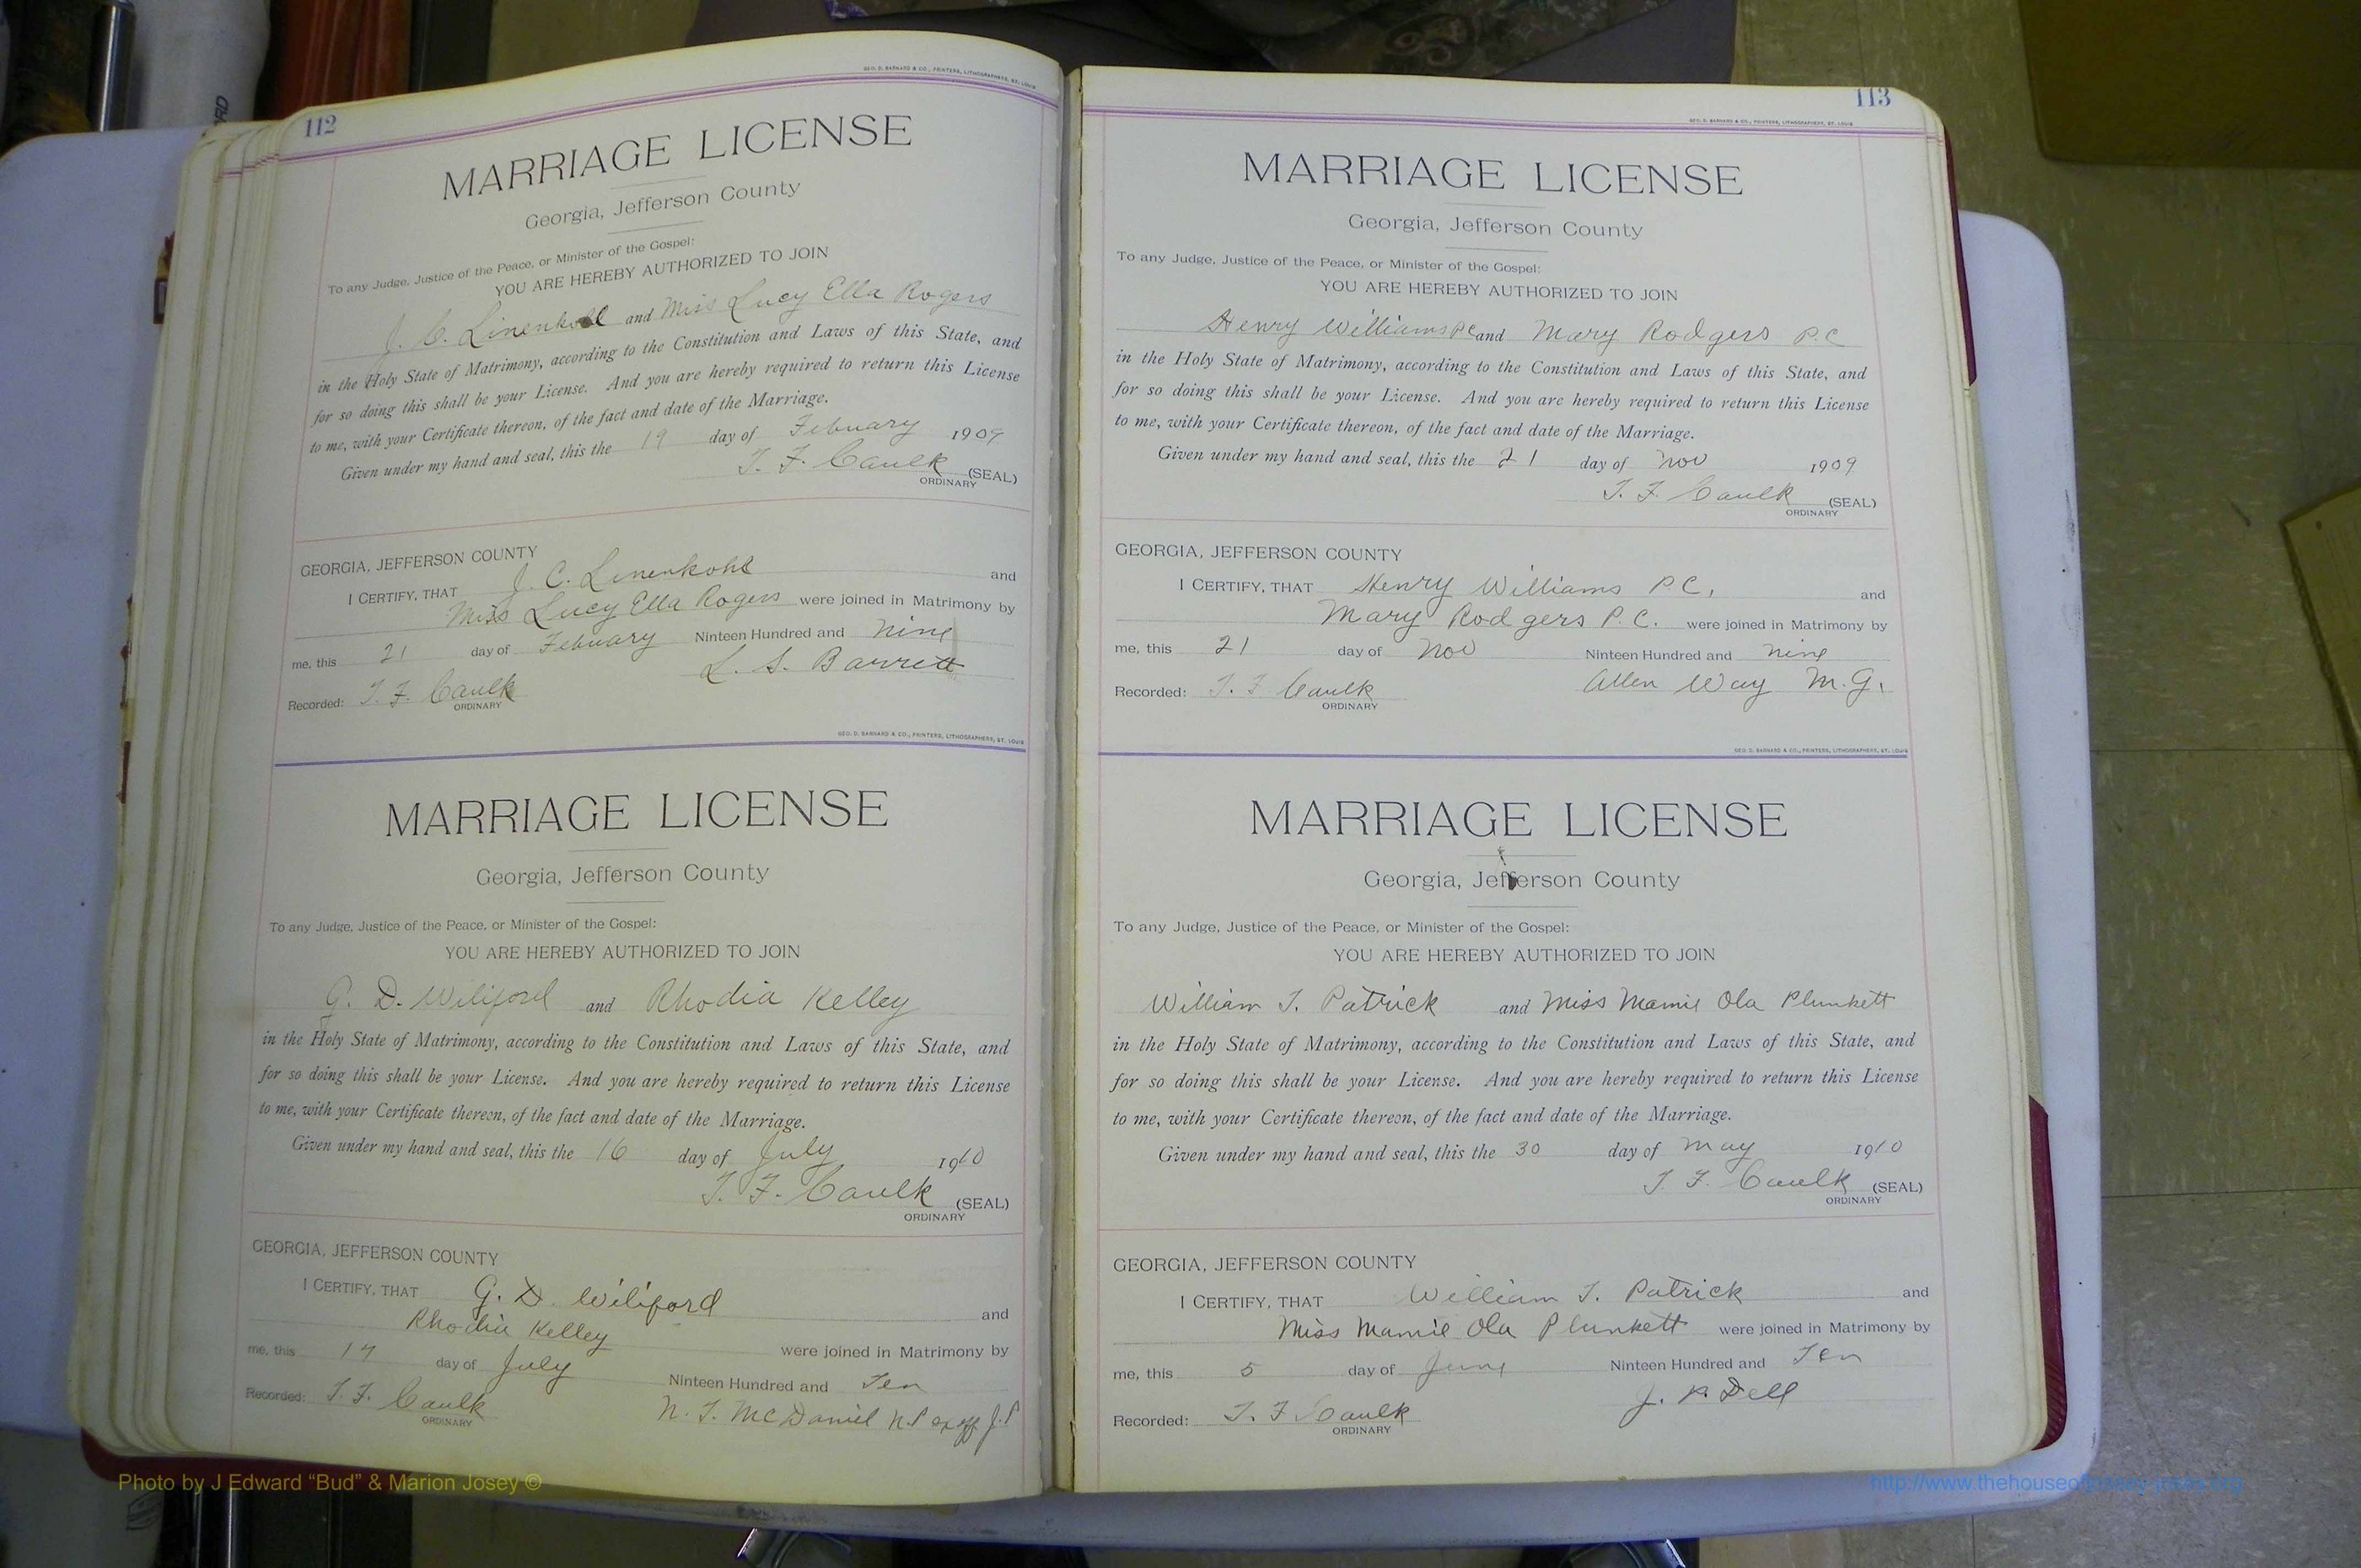 112
GEO. D. BARNARD & CO., PRINTERS, LITHOGRAPHERS, ST. LOUIS
MARRIAGE LICENSE
Georgia, Jefferson County
To any Judge, Justice of the Peace, or Minister of the Gospel:
YOU ARE HEREBY AUTHORIZED TO JOIN
J. C. Linenkohl and Miss Lucy Ella Rogers
in the Holy State of Matrimony, according to the Constitution and Laws of this State, and
for so doing this shall be your License. And you are hereby required to return this License
to me, with your Certificate thereon, of the fact and date of the Marriage.
Given under my hand and seal, this the 19 day of February 1909
T. F. Caulk (SEAL)
ORDINARY
GEORGIA, JEFFERSON COUNTY
I CERTIFY, THAT J. C. Linenkohl and
Miss Lucy Ella Rogers were joined in Matrimony by
me, this 21 day of February Ninteen Hundred and nine
L. S. Barrett
Recorded: T. F. Caulk
ORDINARY
GEO. D. BARNARD & CO., PRINTERS, LITHOGRAPHERS, ST. LOUIS
MARRIAGE LICENSE
Georgia, Jefferson County
To any Judge, Justice of the Peace, or Minister of the Gospel:
YOU ARE HEREBY AUTHORIZED TO JOIN
G. D. Wiliford and Rhodia Kelley
in the Holy State of Matrimony, according to the Constitution and Laws of this State, and
for so doing this shall be your License. And you are hereby required to return this License
to me, with your Certificate thereon, of the fact and date of the Marriage.
Given under my hand and seal, this the 16 day of July 1910
T. F. Caulk (SEAL)
ORDINARY
GEORGIA, JEFFERSON COUNTY
I CERTIFY, THAT G. D. Wiliford and
Rhodia Kelley were joined in Matrimony by
me, this 17 day of July Ninteen Hundred and Ten
Recorded: T. F. Caulk N. T. McDaniel N.P. ex off J.P
ORDINARY
113
GEO. D. BARNARD & CO., PRINTERS, LITHOGRAPHERS, ST. LOUIS
MARRIAGE LICENSE
Georgia, Jefferson County
To any Judge, Justice of the Peace, or Minister of the Gospel:
YOU ARE HEREBY AUTHORIZED TO JOIN
Henry Williams PC and Mary Rodgers P.C
in the Holy State of Matrimony, according to the Constitution and Laws of this State, and
for so doing this shall be your License. And you are hereby required to return this License
to me, with your Certificate thereon, of the fact and date of the Marriage.
Given under my hand and seal, this the 21 day of Nov 1909
T. F. Caulk (SEAL)
ORDINARY
GEORGIA, JEFFERSON COUNTY
I CERTIFY, THAT Henry Williams P.C. and
Mary Rodgers P.C. were joined in Matrimony by
me, this 21 day of Nov Ninteen Hundred and nine
Recorded: T. F Caulk Allen Way M.G.
ORDINARY
GEO. D. BARNARD & CO., PRINTERS, LITHOGRAPHERS, ST. LOUIS
MARRIAGE LICENSE
Georgia, Jefferson County
To any Judge, Justice of the Peace, or Minister of the Gospel:
YOU ARE HEREBY AUTHORIZED TO JOIN
William T. Patrick and Miss Mamie Ola Plunkett
in the Holy State of Matrimony, according to the Constitution and Laws of this State, and
for so doing this shall be your License. And you are hereby required to return this License
to me, with your Certificate thereon, of the fact and date of the Marriage.
Given under my hand and seal, this the 30 day of May 1910
T. F. Caulk (SEAL)
ORDINARY
GEORGIA, JEFFERSON COUNTY
I CERTIFY, THAT William T. Patrick and
Miss Mamie Ola Plunkett were joined in Matrimony by
me, this 5 day of June Ninteen Hundred and Ten
J. P. Dell
Recorded: T. F Caulk
ORDINARY
Photo by J Edward “Bud” & Marion Josey ©